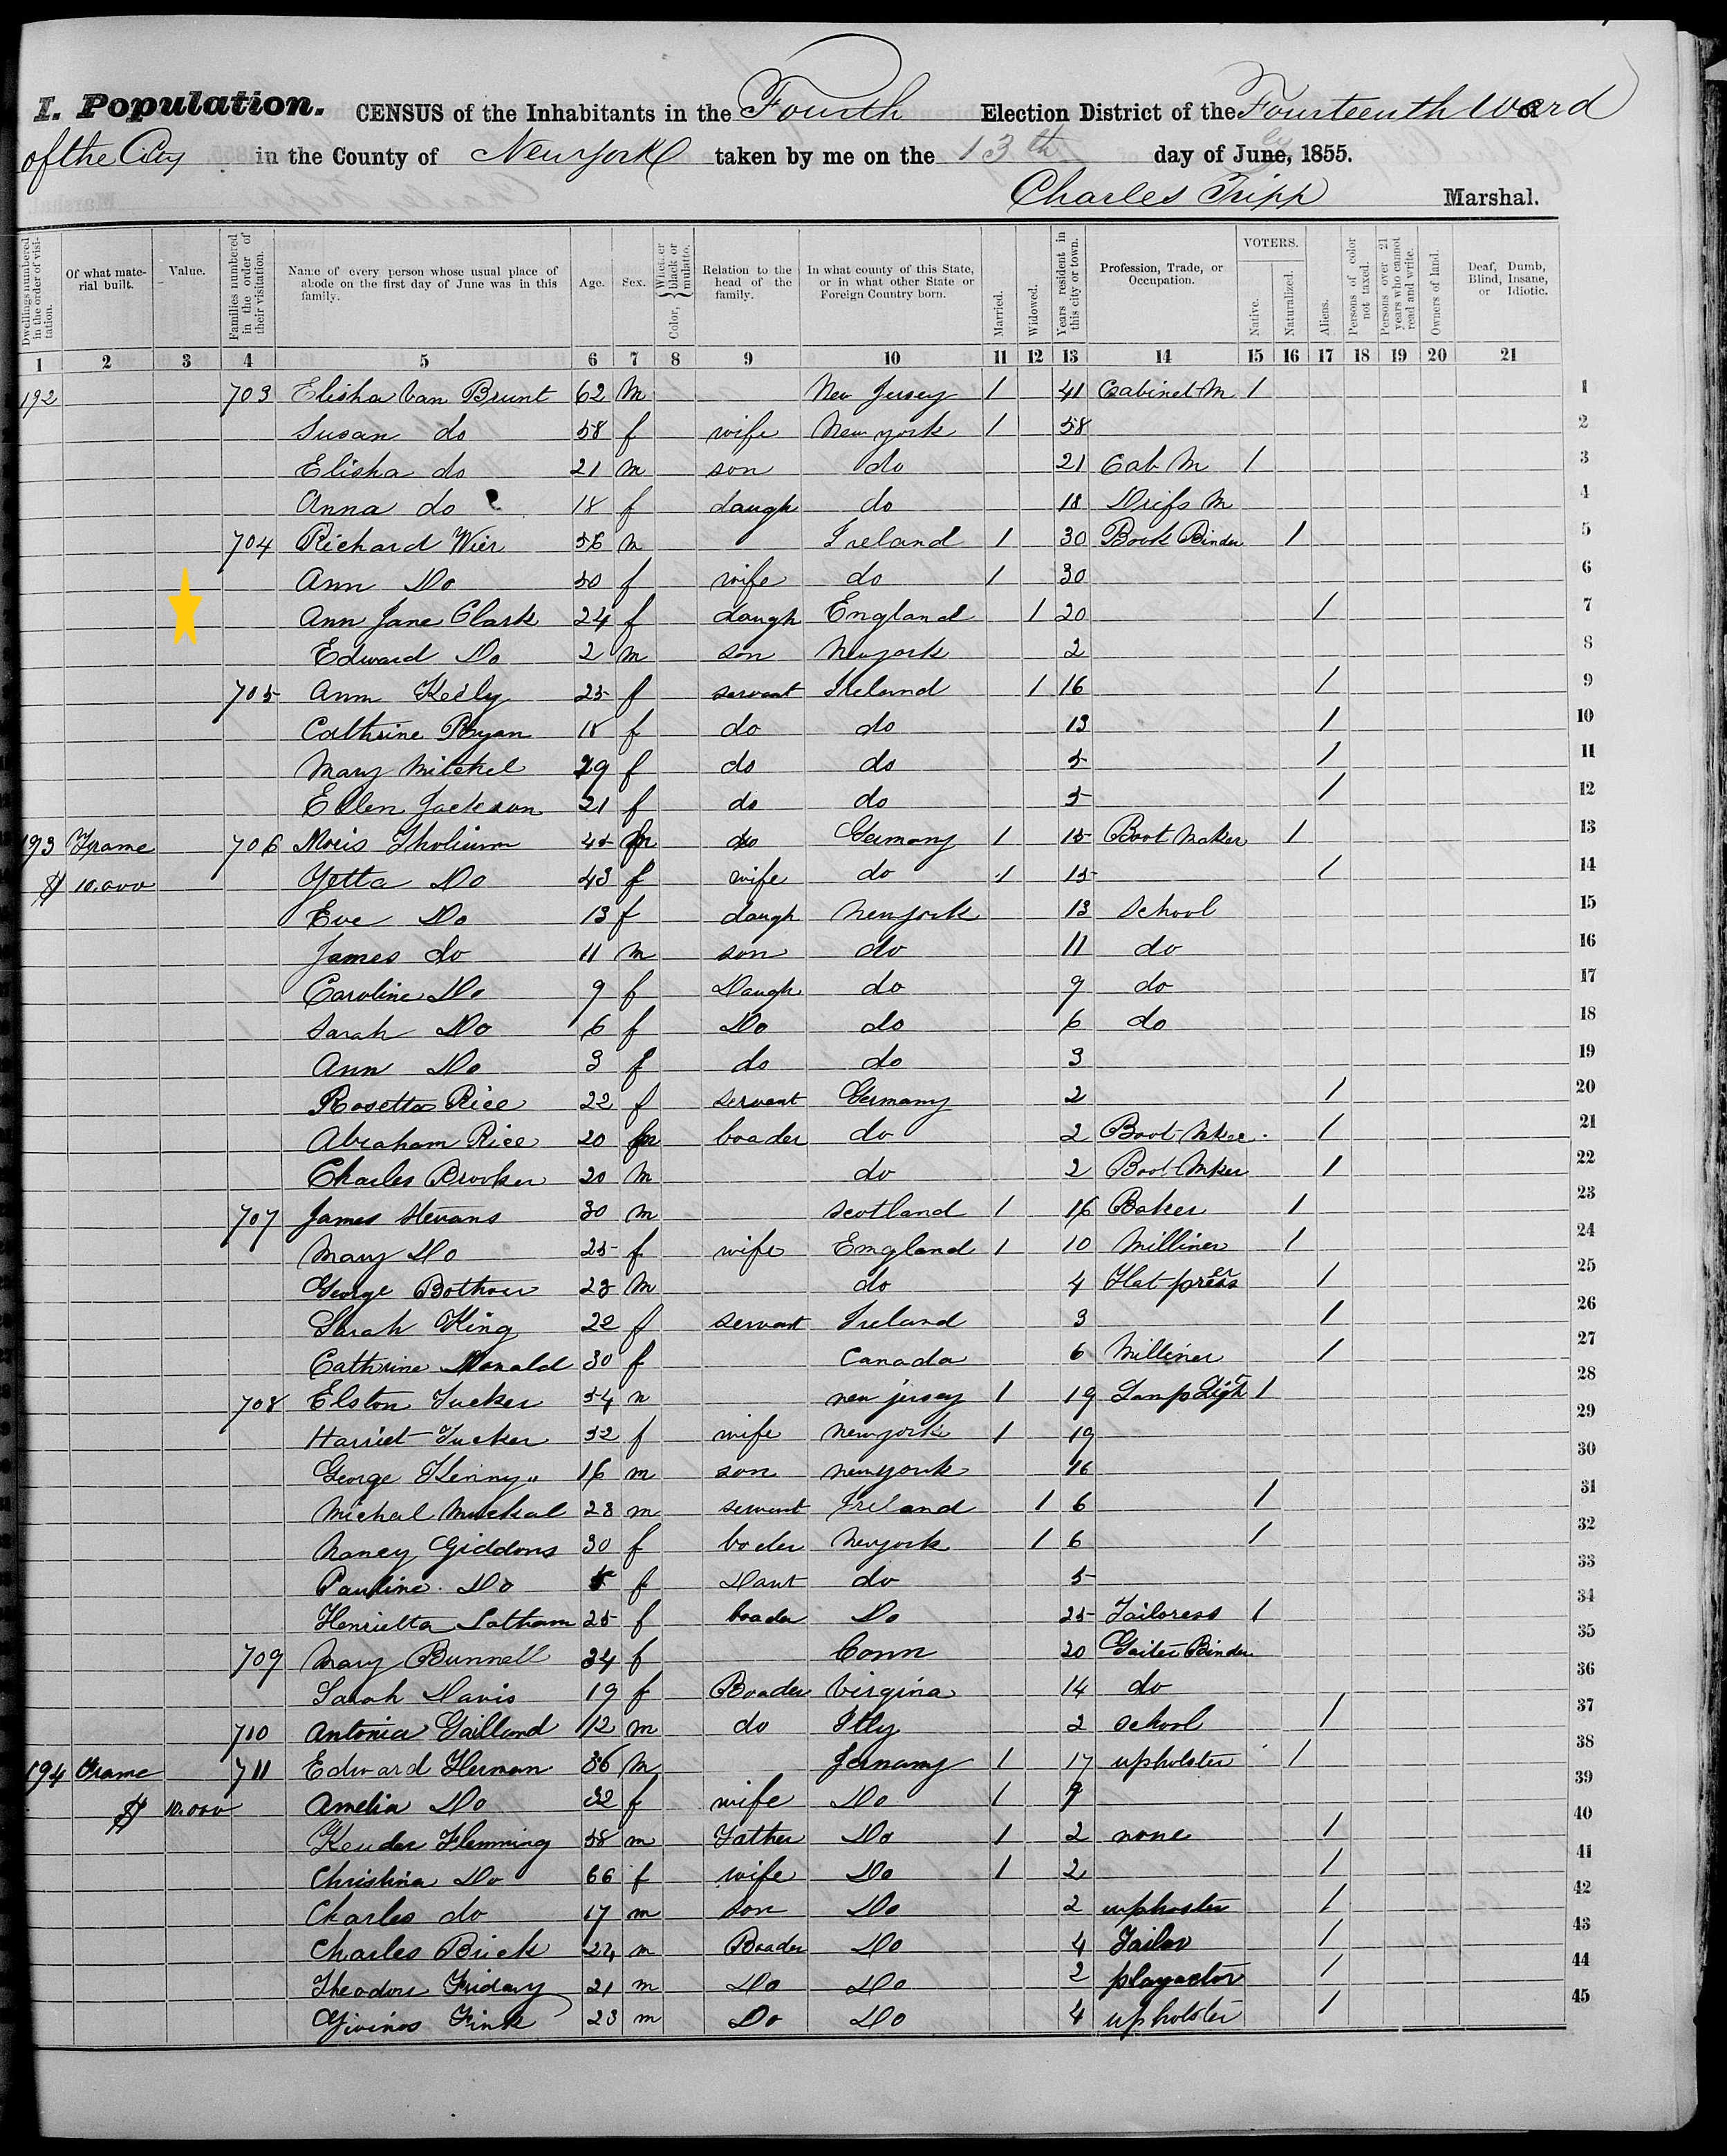 I. Population. CENSUS of the Inhabitants in the Fourth Election District of the Fourteenth Ward
of the City in the County of New York taken by me on the 13th day of June, 1855.
Charles Tripp Marshal.
Dwellings numbered in the order of visitation. Of what material built. Value. Families numbered in the order of their visitation. Name of every person whose usual place of abode on the first day of June was in this family. Age. Sex. Color, Whether black or mulatto. Relation to the head of the family. In what county of this State, or in what other State or Foreign Country born. Married. Widowed. Years resident in this city or town. Profession, Trade, or Occupation. VOTERS. Native. Naturalized. Aliens. Persons of color not taxed. Persons over 21 years who cannot read and write. Owners of land. Deaf, Dumb, Blind, Insane, or Idiotic.
1 2 3 4 5 6 7 8 9 10 11 12 13 14 15 16 17 18 19 20 21
192 703 Elisha Van Brunt 62 M New Jersey 1 41 Cabinet M 1 1
Susan do 58 f wife New york 1 58 2
Elisha do 21 m son do 21 Cab M 1 3
Anna do 18 f daugh do 18 Dress M 4
704 Richard Wier 56 m Ireland 1 30 Book Binder 1 5
Ann Do 50 f wife do 1 30 6
Ann Jane Clark 24 f daugh England 1 20 1 7
Edward Do 2 m son Newyork 2 8
705 Ann Keily 25 f servant Ireland 1 16 1 9
Cathrine Ryan 18 f do do 13 1 10
Mary Mitchel 29 f do do 5 1 11
Ellen Jackson 21 f do do 5 1 12
193 Frame 706 Moris 45 m do Germany 1 15 Boot Maker 1 13
$ 10.000 Yetta Do 43 f wife do 1 15 1 14
Eve Do 13 f daugh Newyork 13 School 15
James do 11 m son do 11 do 16
Caroline Do 9 f Daugh do 9 do 17
Sarah Do 6 f Do do 6 do 18
Ann Do 3 f do do 3 19
Rosetta Rice 22 f servant Germany 2 1 20
Abraham Rice 20 m boader do 2 Boot Mker 1 21
Charles Brooker 20 M do 2 Boot Mker 1 22
707 James Stevans 30 m Scotland 1 16 Baker 1 23
Mary Do 25 f wife England 1 10 Milliner 1 24
George 23 M do 4 Hat presser 1 25
Sarah King 22 f servant Ireland 3 1 26
Cathrine Donald 30 f Canada 6 Milliner 1 27
708 Elston Tucker 54 m new jersey 1 19 Lamp Light 1 28
Harriet Tucker 52 f wife newyork 1 19 29
George Henry " 16 m son newyork 16 30
Michal 28 m servant Ireland 1 6 1 31
Nancy Giddons 30 f boder Newyork 1 6 1 32
Pauline Do 5 f Daut do 5 33
Henrietta Latham 25 f boader Do 25 Tailoress 1 34
709 Mary Bunnell 34 f Conn 20 Gaiter Binder 35
Sarah Davis 19 f Boader Virgina 14 do 36
710 Antonia Gailland 12 m do Itly 2 school 1 37
194 Frame 711 Edward Herman 36 M Jermany 1 17 upholster 1 38
$ 10.000 Amelia Do 32 f wife Do 1 9 39
Flemming 58 m Father Do 1 2 none 1 40
Christina Do 66 f wife Do 1 2 1 41
Charles do 17 m son Do 2 uphoster 1 42
Charles Brick 24 m Boader Do 4 Tailor 1 43
Theodore Friday 21 m Do Do 2 playactor 1 44
Fink 23 m Do Do 4 upholster 1 45